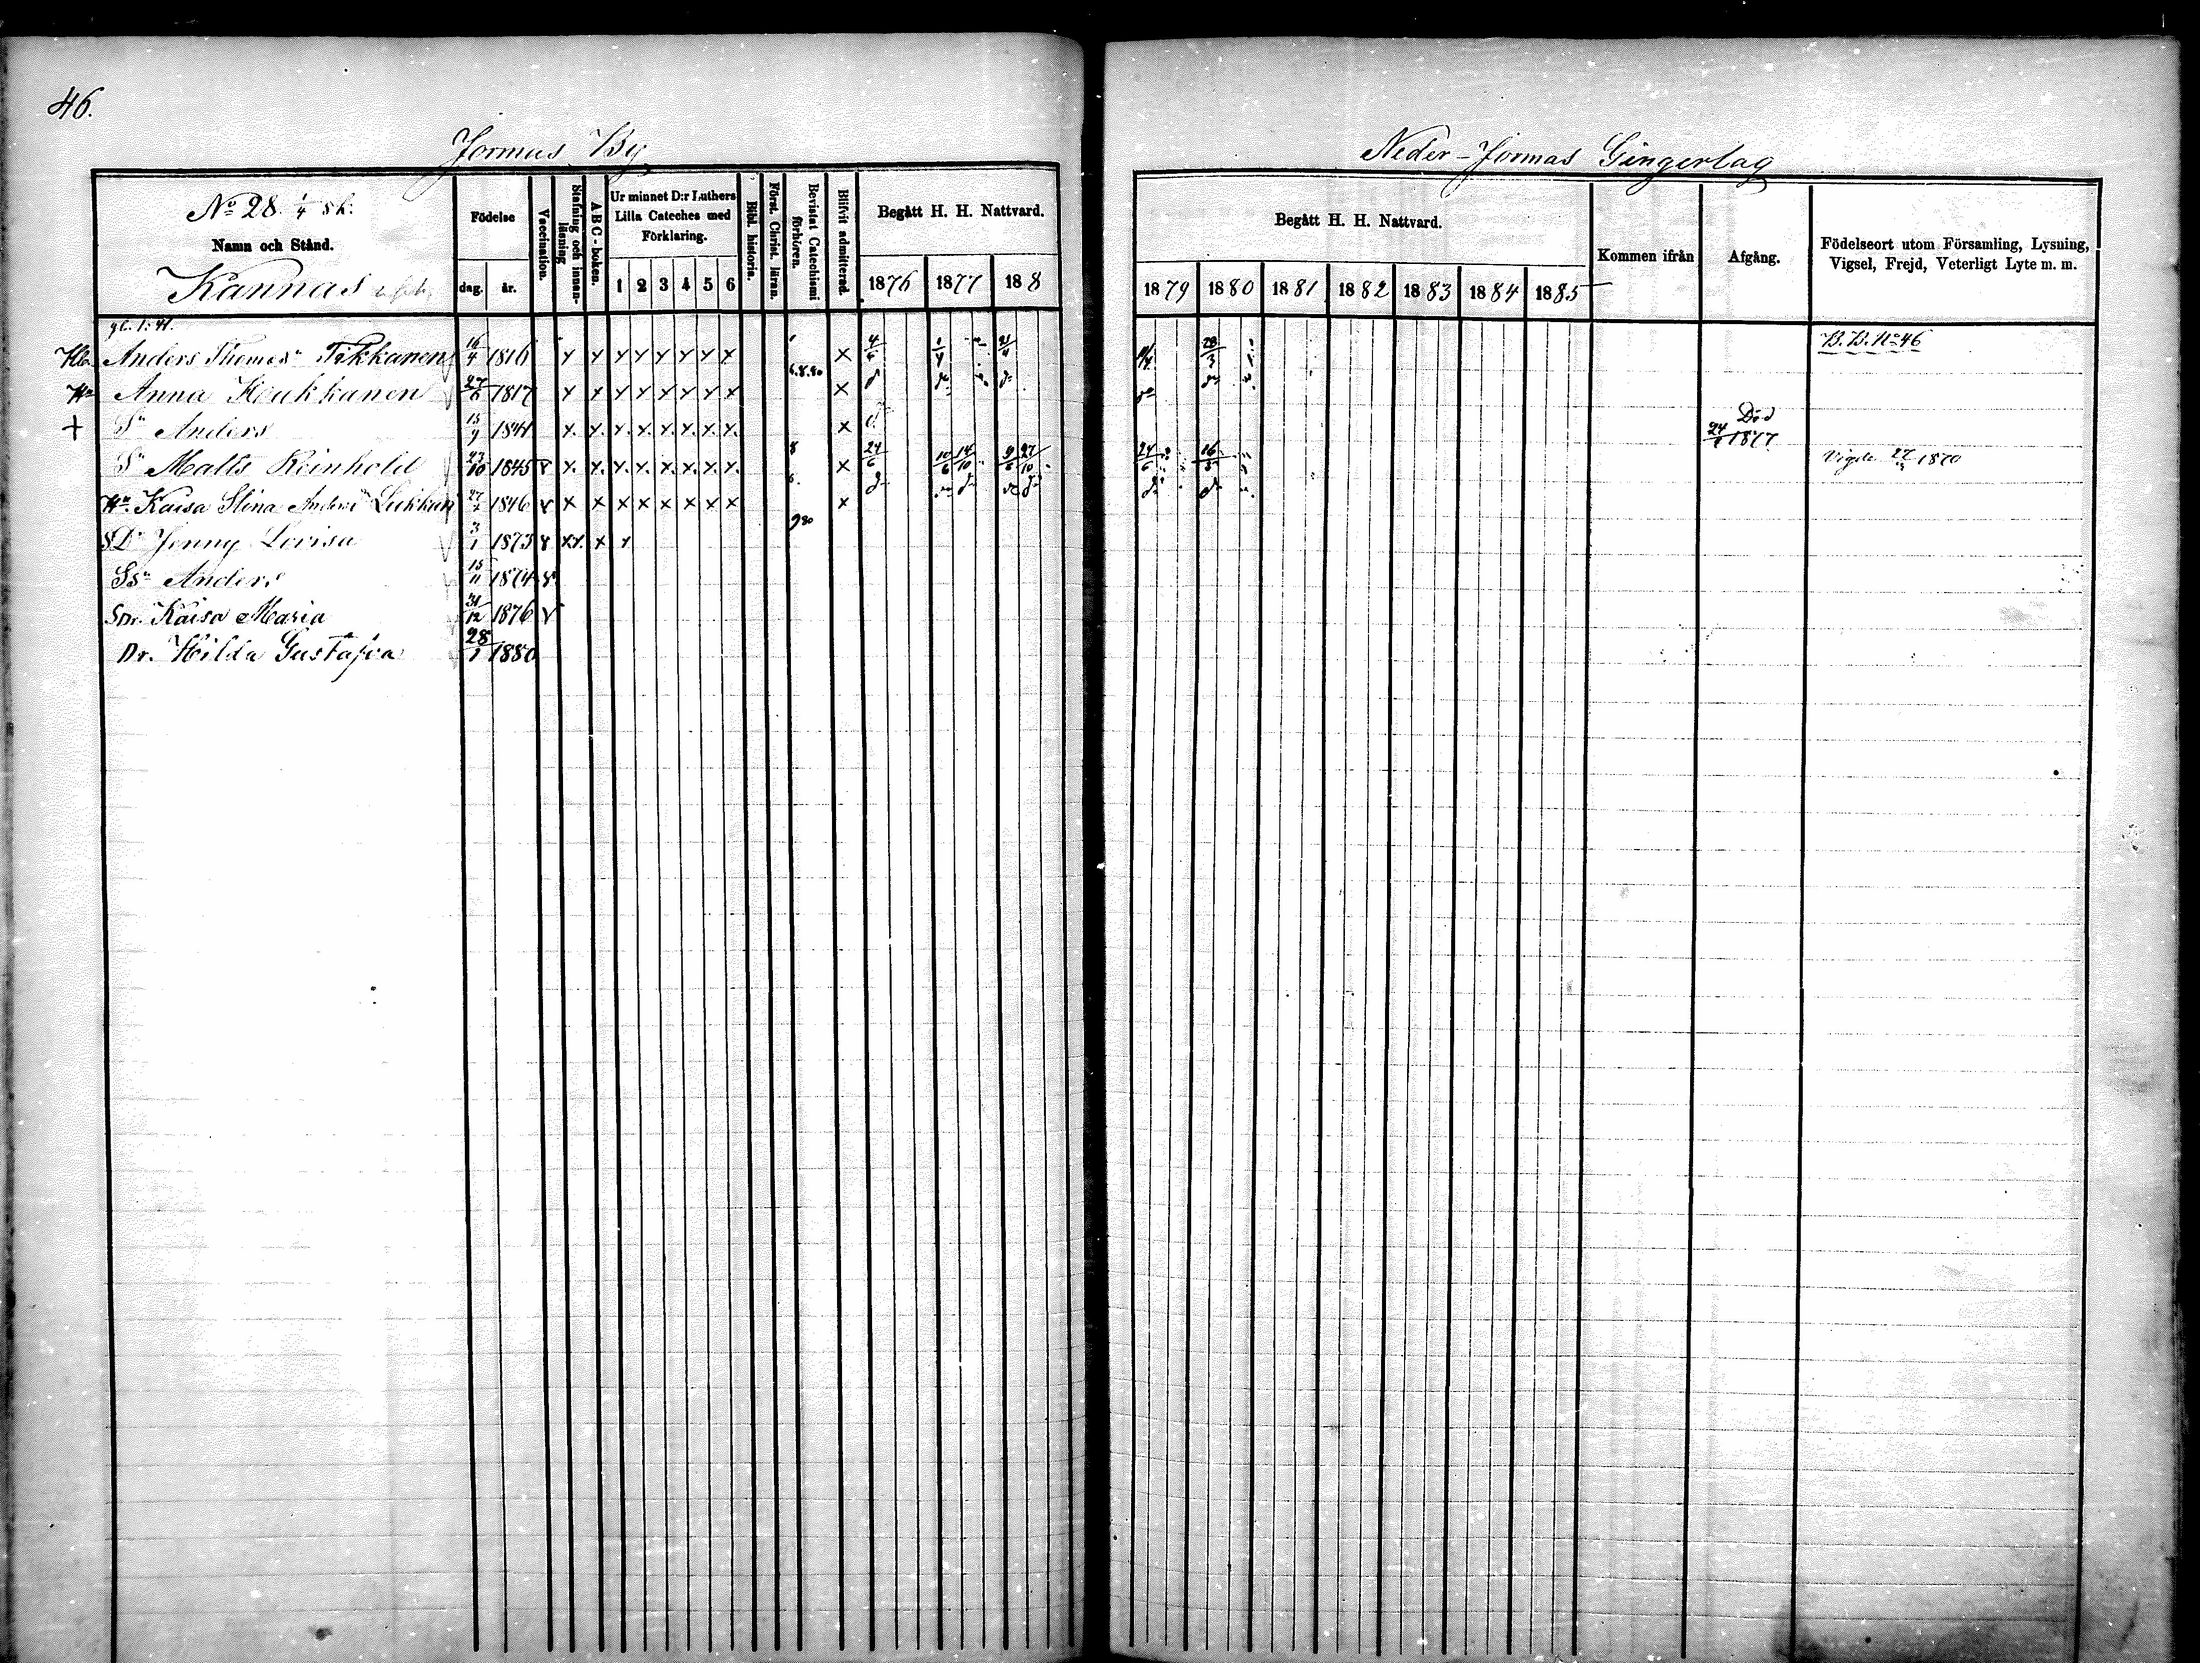 46.
Jormus By
Neder-Jormas Gingerlag
No 28. 1/4 sk.
Namn och Stånd.
Kannas
Födelse
dag. år.
Vaccination.
Stafning och innanläsning
A B C-boken.
Ur minnet D:r Luthers Lilla Cateches med Förklaring.
1 2 3 4 5 6
Bibl. historia.
Först. Christ. läran.
Bevistat Catechismi förhören.
Blifvit admitterad.
Begått H. H. Nattvard.
1876 1877 188
Begått H. H. Nattvard.
1879 1880 1881 1882 1883 1884 1885
Kommen ifrån
Afgång.
Födelseort utom Församling, Lysning, Vigsel, Frejd, Veterligt Lyte m. m.
Anders Thomes Tikkanen 16/4 1816 x x x x x x x x x 4/6 21/4 28/3 B.B. No 46
6.8.80
Hu Anna Keukkanen 27/6 1817 x x x x x x x x x
+ Sn Anders 15/9 1841 x x x x x x x x x Död 24/ 1877
Sn Matts Reinhold 23/10 1845 v x x x x x x x x x 24/6 10/6 14/10 9/6 27/10 24/6 16/ Vigde 27/ 1870
Hu Kaisa Stina 27/ 1846 v x x x x x x x x x
SDr Jenny Lovisa 3/1 1873 v xx x x 9 80
Ssn Anders 15/11 1874 v
SDr. Kaisa Maria 31/12 1876 v
Dr. Hilda Gustafva 28/1 1880